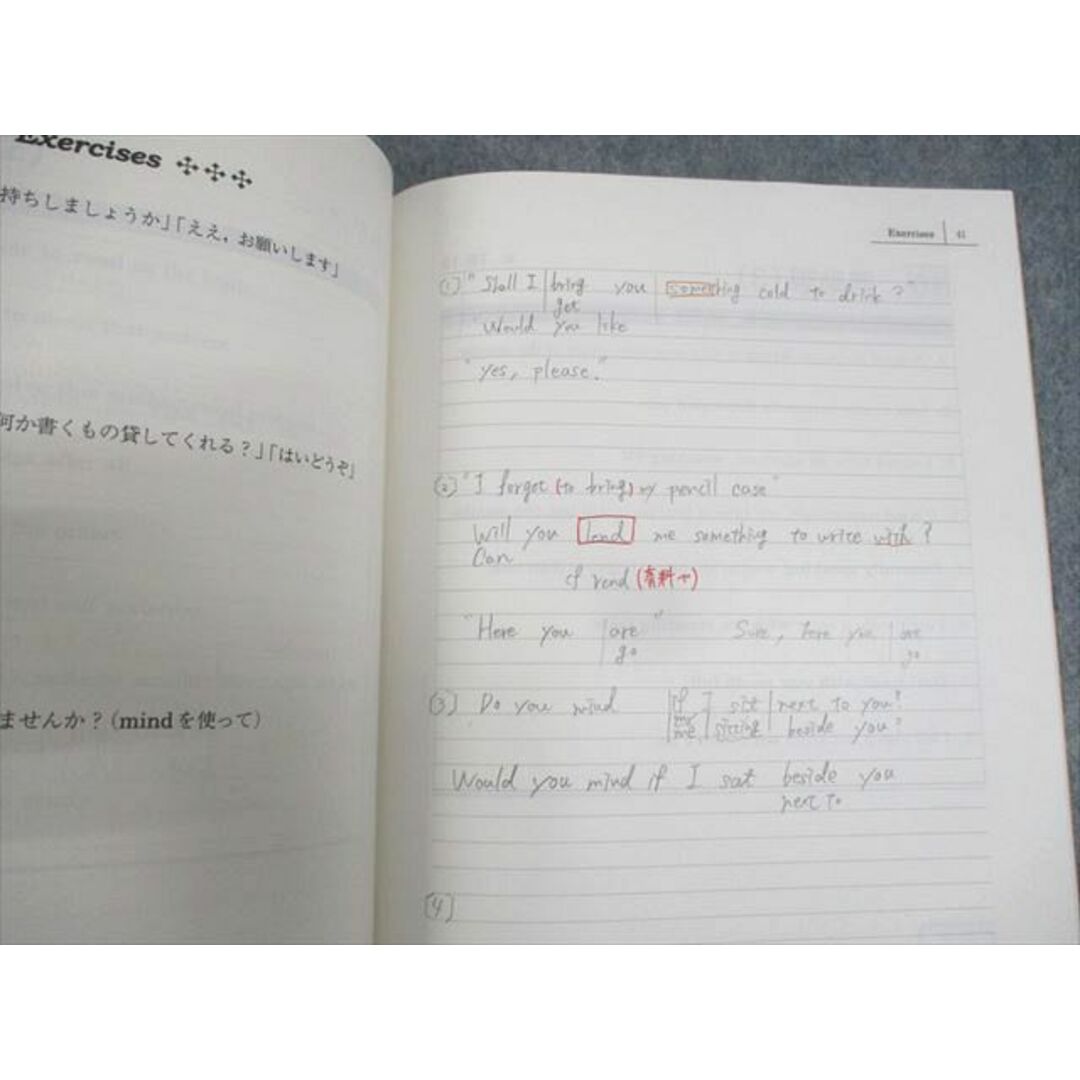 Exercises
持ちしましょうか」「ええ，お願いします」
何か書くもの貸してくれる？」「はいどうぞ」
ませんか？（mindを使って）
Exercises 41
(1) "Shall I bring you something cold to drink?"
get
"Would you like
"yes, please."
(2) "I forgot (to bring) my pencil case"
Will you lend me something to write with?
Can
cf rend (有料で)
"Here you are"
go
Sure, here you are
go
(3) Do you mind if I sit next to you?
my
me sitting beside you?
Would you mind if I sat beside you
next to
(4)